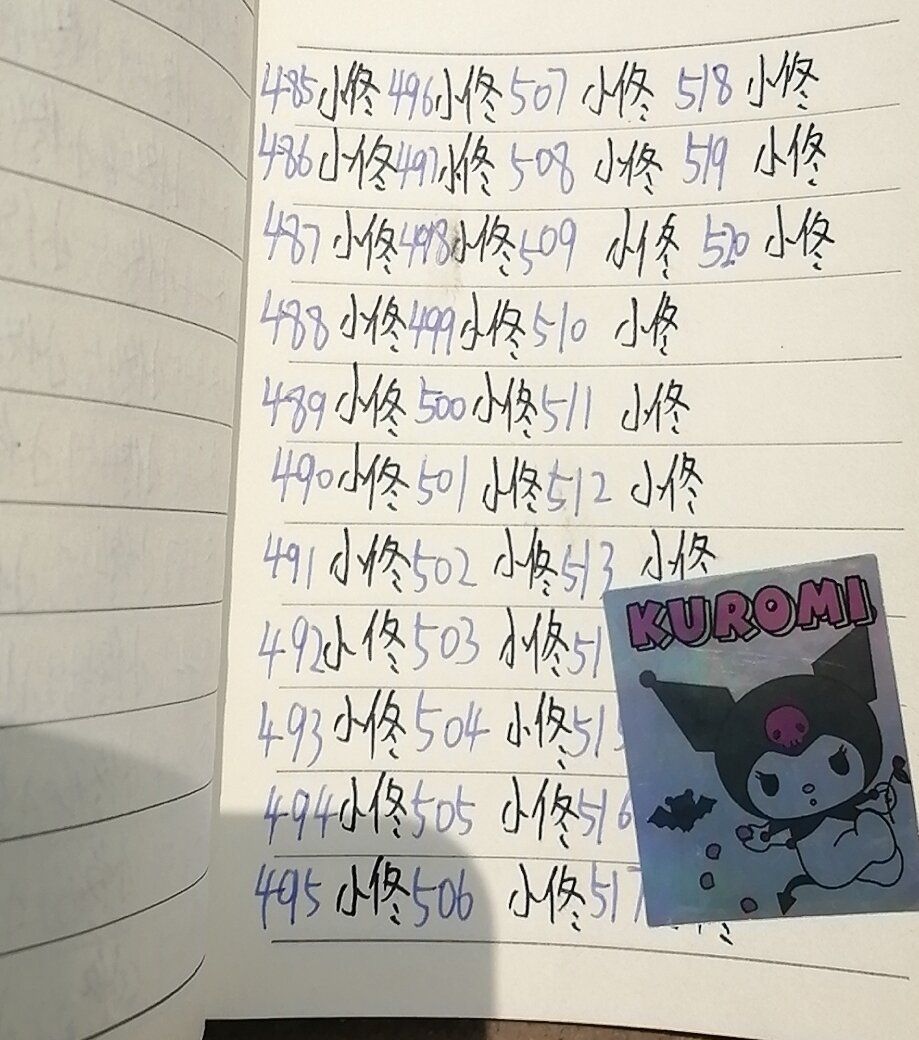 485小佟 496小佟 507 小佟 518 小佟
486小佟 497小佟 508 小佟 519 小佟
487 小佟 498小佟 509 小佟 520 小佟
488 小佟 499小佟 510 小佟
489 小佟 500 小佟 511 小佟
490 小佟 501 小佟 512 小佟
491 小佟 502 小佟 513 小佟
492小佟 503 小佟 51
493 小佟 504 小佟 515
494小佟 505 小佟 516
495 小佟 506 小佟 517
KUROMI